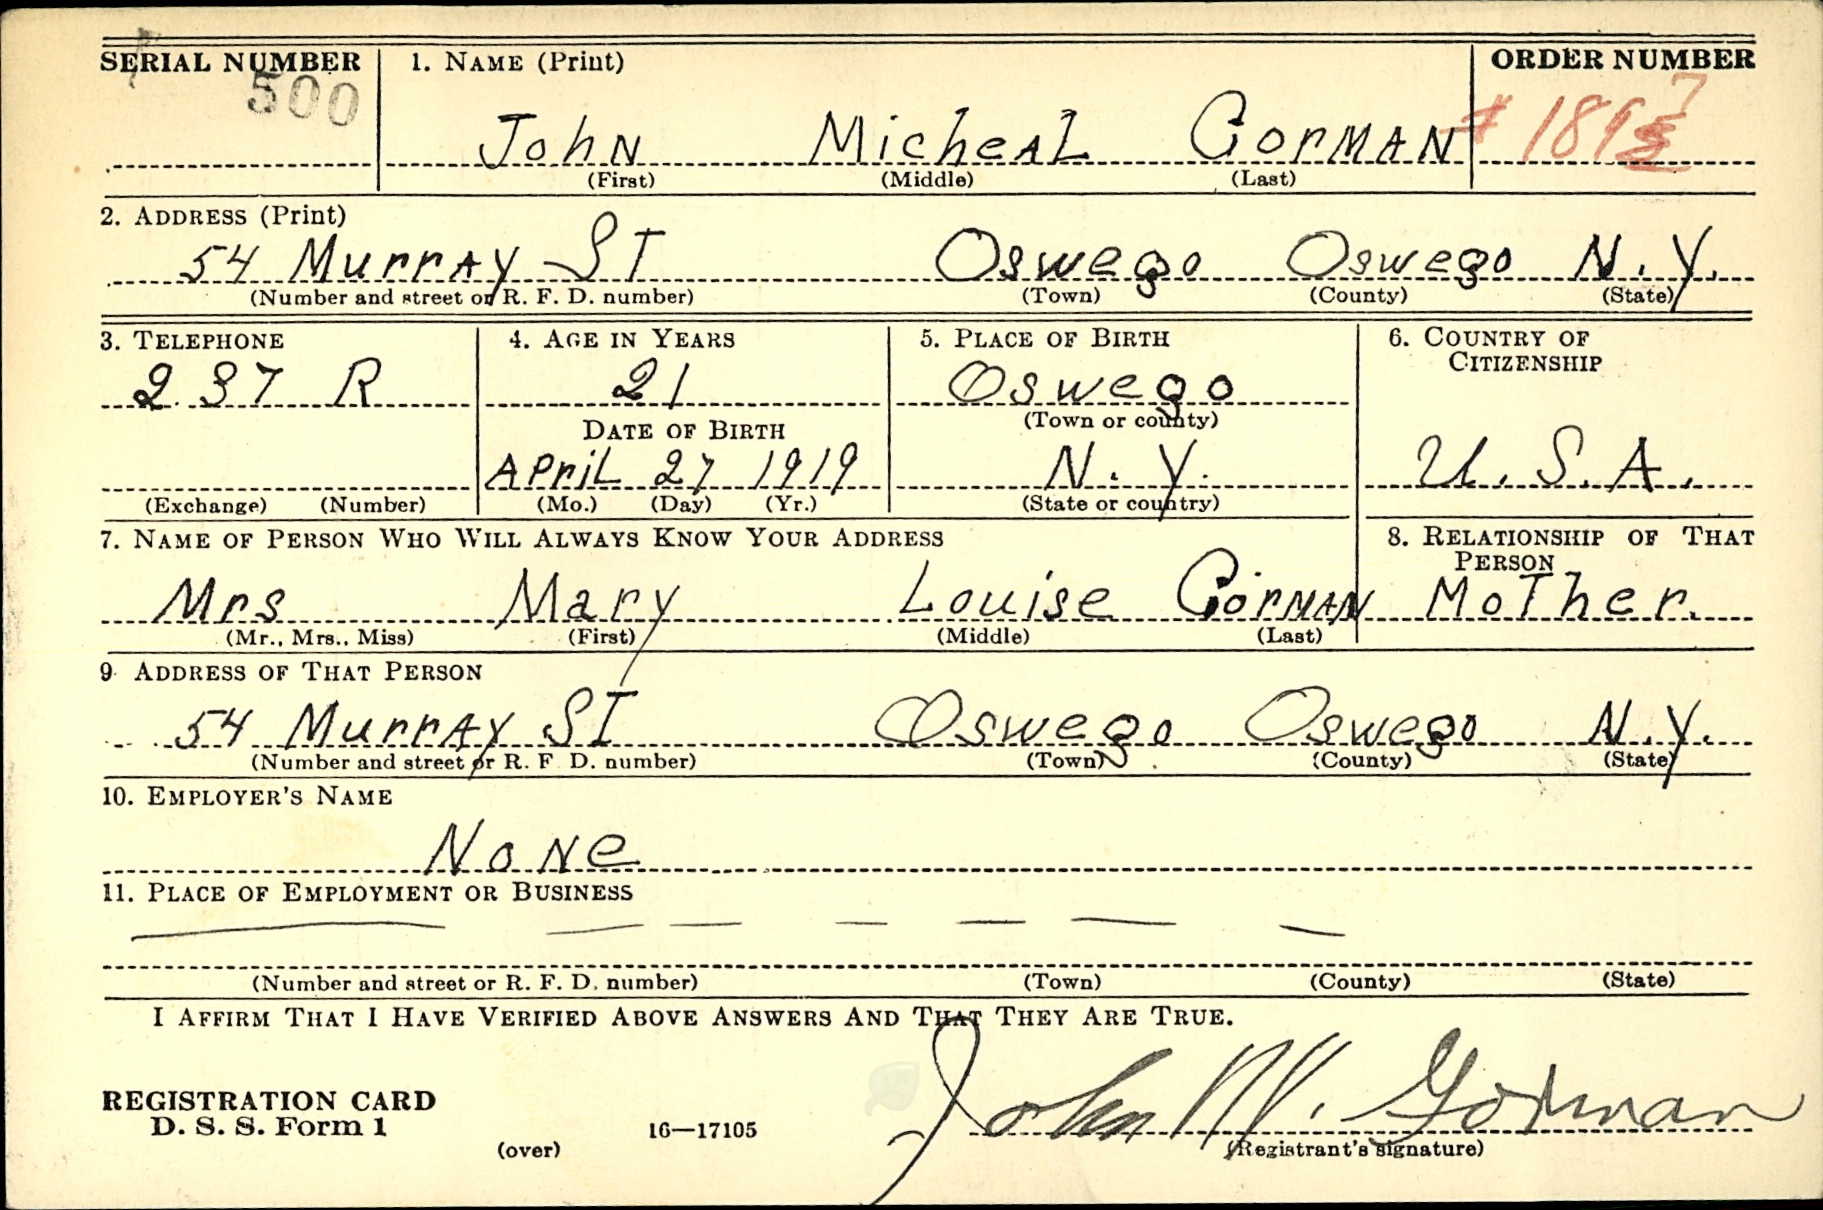 SERIAL NUMBER 1. NAME (Print) ORDER NUMBER
500 7
John Micheal Gorman # 189
(First) (Middle) (Last)
2. ADDRESS (Print)
54 Murray ST Oswego Oswego N.Y.
(Number and street or R. F. D. number) (Town) (County) (State)
3. TELEPHONE 4. AGE IN YEARS 5. PLACE OF BIRTH 6. COUNTRY OF
CITIZENSHIP
237 R 21 Oswego
(Town or county)
DATE OF BIRTH
April 27 1919 N. Y. U. S. A.
(Exchange) (Number) (Mo.) (Day) (Yr.) (State or country)
7. NAME OF PERSON WHO WILL ALWAYS KNOW YOUR ADDRESS 8. RELATIONSHIP OF THAT
PERSON
Mrs Mary Louise Gorman Mother.
(Mr., Mrs., Miss) (First) (Middle) (Last)
9. ADDRESS OF THAT PERSON
54 Murray ST Oswego Oswego N.Y.
(Number and street or R. F. D. number) (Town) (County) (State)
10. EMPLOYER'S NAME
None
11. PLACE OF EMPLOYMENT OR BUSINESS
— — — — — — —
(Number and street or R. F. D. number) (Town) (County) (State)
I AFFIRM THAT I HAVE VERIFIED ABOVE ANSWERS AND THAT THEY ARE TRUE.
John M. Gorman
REGISTRATION CARD
D. S. S. Form 1 16—17105
(over) (Registrant's signature)